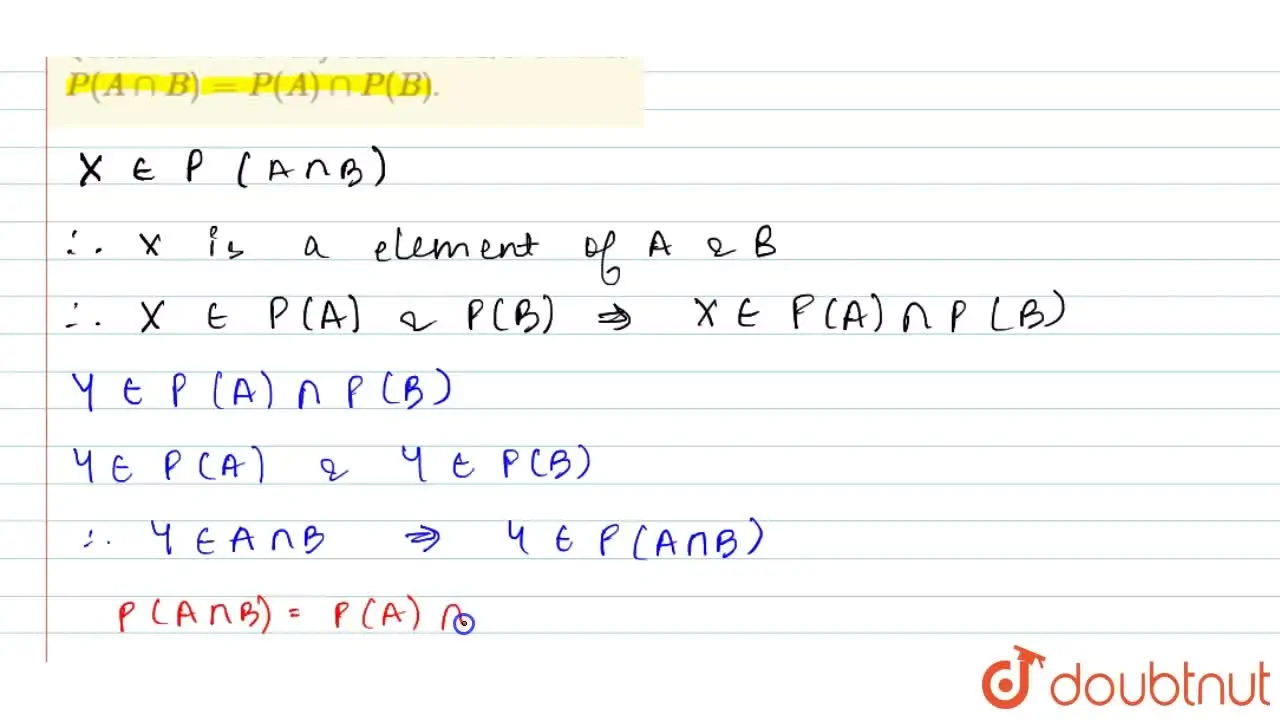 P(A ∩ B) = P(A) ∩ P(B).
X ∈ P (A ∩ B)
∴ X is a element of A & B
∴ X ∈ P(A) & P(B) ⇒ X ∈ P(A) ∩ P(B)
Y ∈ P(A) ∩ P(B)
Y ∈ P(A) & Y ∈ P(B)
∴ Y ∈ A ∩ B ⇒ Y ∈ P(A ∩ B)
P(A ∩ B) = P(A) ∩
doubtnut